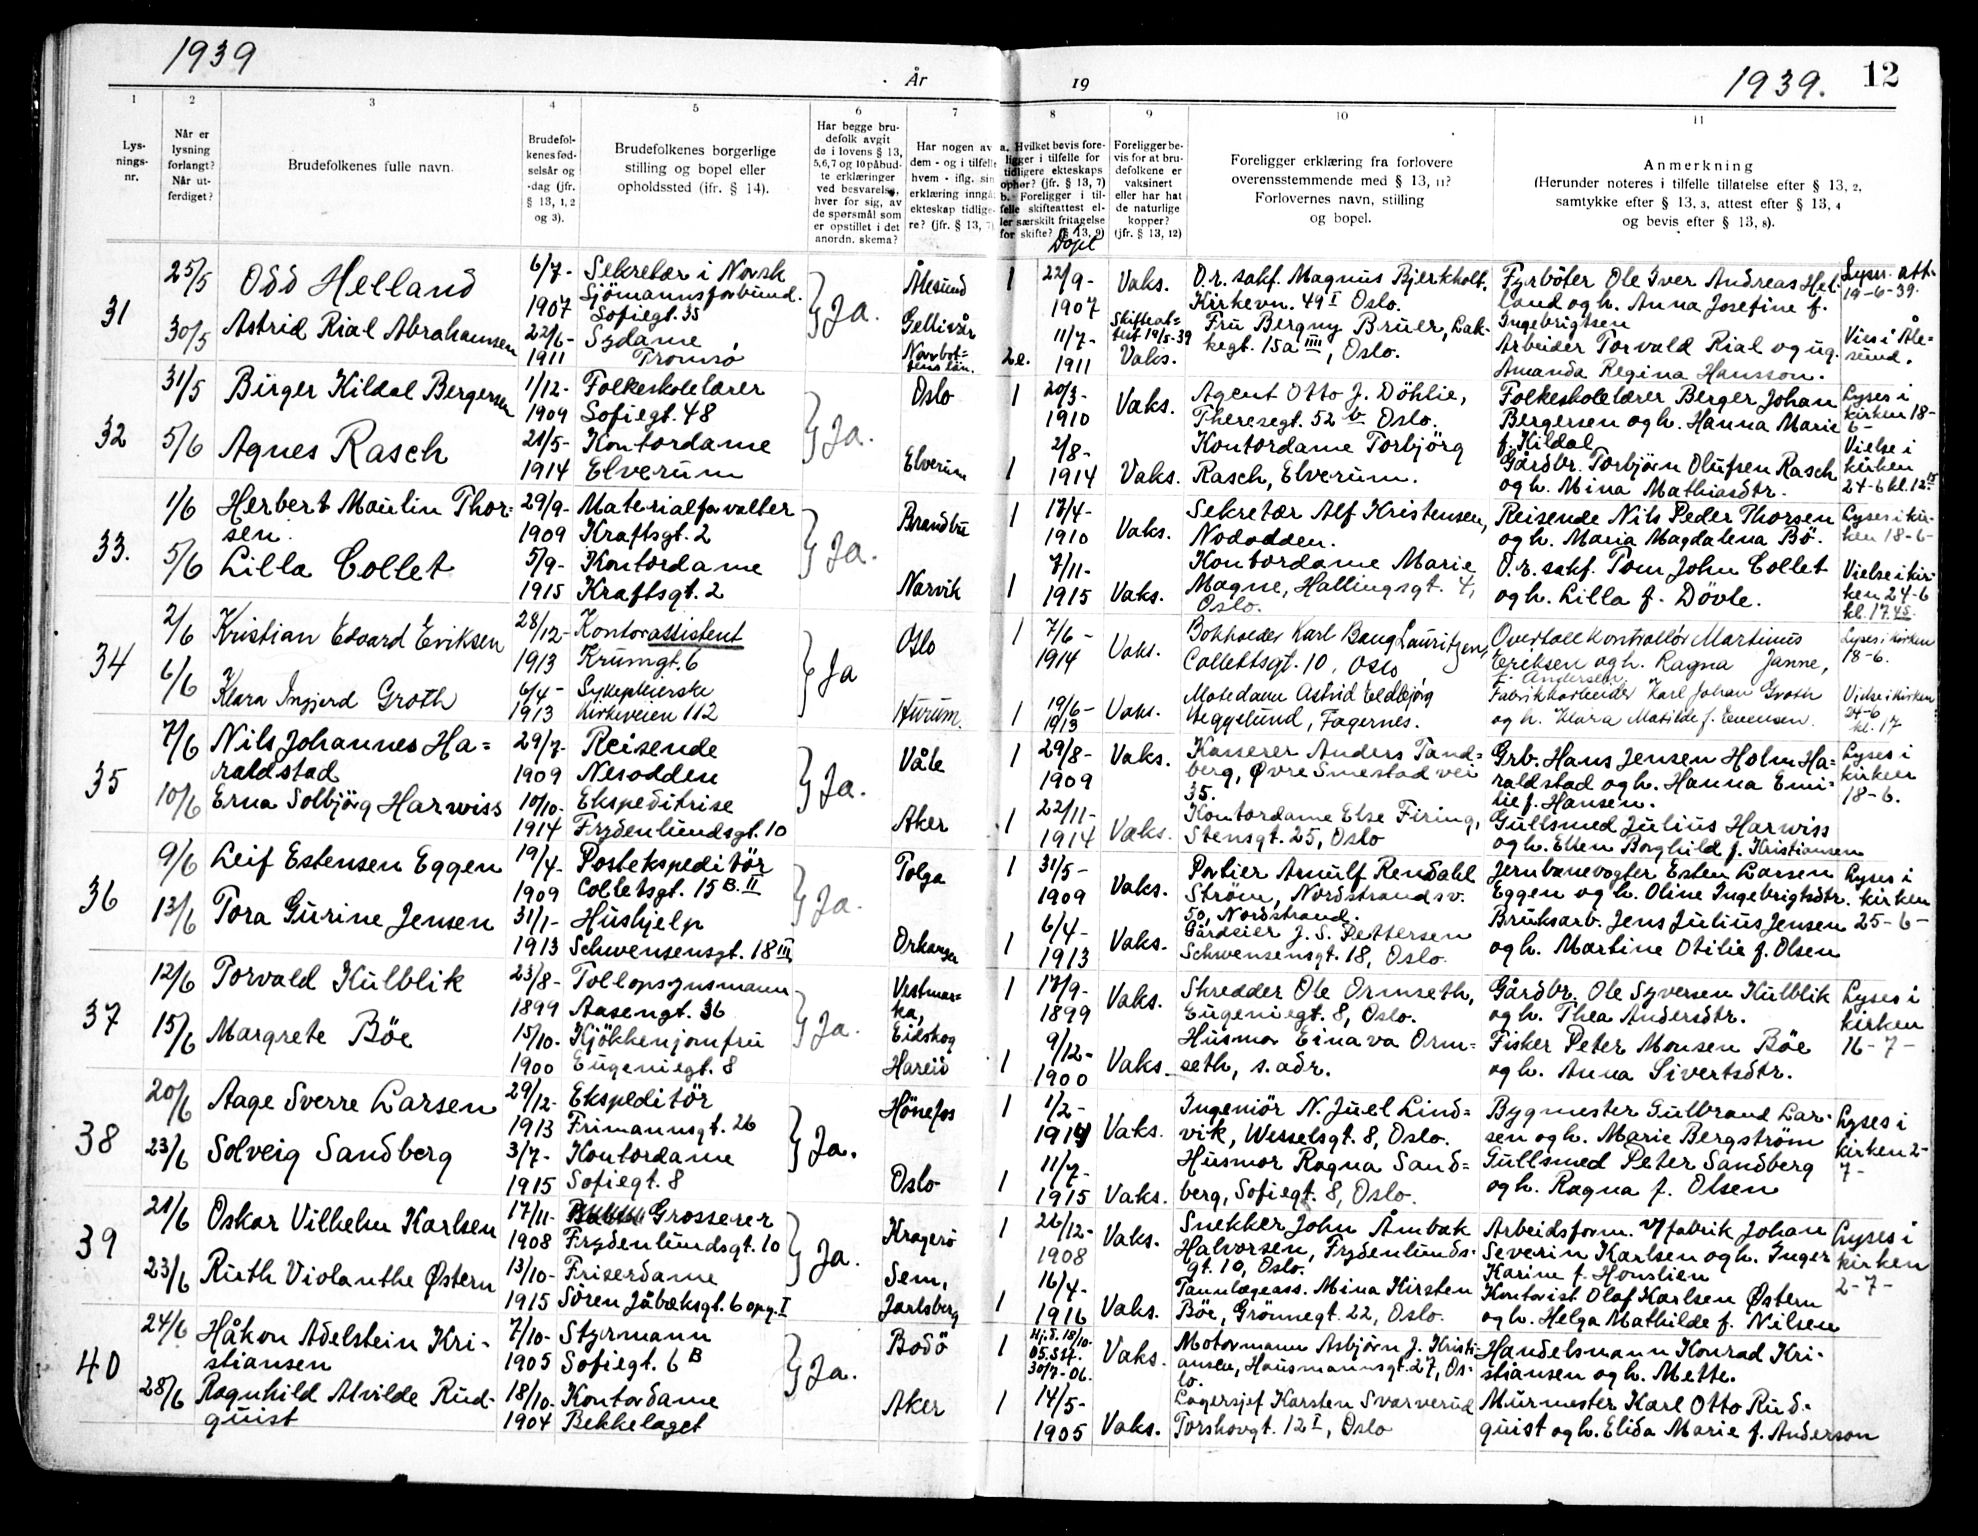 1939
År
19
1939.
12
1
2
3
4
5
6
7
8
9
10
11
Lys-
nings-
nr.
Når er
lysning
forlangt?
Når ut-
ferdiget?
Brudefolkenes fulle navn.
Brudefol-
kenes fød-
selsår og
-dag (jfr.
§ 13, 1, 2
og 3).
Brudefolkenes borgerlige
stilling og bopel eller
opholdssted (ifr. § 14).
Har begge bru-
defolk avgit
de i lovens § 13,
5,6,7 og 10 påbud-
te erklæringer
ved besvarelse,
hver for sig, av
de spørsmål som
er opstillet i det
anordn. skema?
Har nogen av
dem - og i tilfelle
hvem - iflg. sin
erklæring inngå
ekteskap tidlige-
re? (jfr. § 13, 7)
a. Hvilket bevis fore-
ligger i tilfelle for
tidligere ekteskaps
ophør? (jfr. § 13, 7)
b. Foreligger i til-
felle skifteattest el-
ler særskilt fritagelse
for skifte? (§ 13, 9)
Døpt
Foreligger be-
vis for at bru-
defolkene er
vaksinert
eller har hat
de naturlige
kopper?
(jfr. § 13, 12)
Foreligger erklæring fra forlovere
overensstemmende med § 13, 11?
Forlovernes navn, stilling
og bopel.
Anmerkning
(Herunder noteres i tilfelle tillatelse efter § 13, 2,
samtykke efter § 13, 3, attest efter § 13, 4
og bevis efter § 13, 8).
31
25/5
30/5
Odd Helland
Astrid Rial Abrahamsen
6/7-
1907
22/6-
1911
Sekretær i Norsk
Sjömannsforbund.
Sofiegt. 35
Sydame
Tromsö
Ja.
Ålesund
Gellivår
Norrbot=
tens län.
1
2e.
22/9-
1907
11/7-
1911
Vaks.
Skifteat=
test 19/5-39
Vaks.
O.r. sakf. Magnus Bjerkholt,
Kirkevn. 49 I Oslo.
Fru Bergny Bruer, Lak-
kegt. 15a IIII, Oslo.
Fyrböter Ole Iver Andreas Hel-
land og h. Anna Josefine f.
Ingebrigtsen
Arbeider Torvald Rial og ug.
Amanda Regina Hansson.
Lysn. att.
19-6-39.
Vies i Åle=
sund.
32
31/5
5/6
Birger Kildal Bergersen
Agnes Rasch
1/12-
1909
21/5-
1914
Folkeskolelærer
Sofiegt. 48
Kontordame
Elverum
Ja.
Oslo
Elverum
1
1
20/3-
1910
2/8-
1914
Vaks.
Vaks.
Agent Otto J. Döhlie,
Theresegt. 52 b Oslo.
Kontordame Torbjörg
Rasch, Elverum.
Folkeskolelærer Berger Johan
Bergersen og h. Hanna Marie
f. Kildal
Gårdbr. Torbjörn Olufsen Rasch
og h. Mina Mathiasdtr.
Lyses i
kirken 18-
6-
Vielse i
kirken
24-6 kl. 12
33.
1/6
5/6
Herbert Maulin Thor=
sen.
Lilla Collet
29/9-
1909
5/9-
1915
Materialforvalter
Kraftsgt. 2
Kontordame
Kraftsgt. 2
Ja.
Brandbu
Narvik
1
1
17/4-
1910
7/11-
1915
Vaks.
Vaks.
Sekretær Alf Kristensen,
Notodden.
Kontordame Marie
Magne, Hallingsgt. 4,
Oslo.
Reisende Nils Peder Thorsen
og h. Maria Magdalena Bö.
O.r. sakf. Tom John Collet
og h. Lilla f. Dövle.
Lyses i kir-
ken 18-6-
Vielse i kir-
ken 24-6
kl. 17.45.
34
2/6
6/6
Kristian Edvard Eriksen
Klara Ingjerd Groth
28/12-
1913
6/4-
1913
Kontorassistent
Krumgt. 6
Sykepleierske
Kirkeveien 112
Ja
Oslo
Hurum.
1
1
7/6-
1914
19/6-
1913
Vaks.
Vaks.
Bokholder Karl Baug Lauritzen,
Collettsgt. 10, Oslo
Motedame Astrid Eldbjørg
Heggelund, Fagernes.
Overtollkontrollör Martinus
Eriksen og h. Ragna Janne,
f. Andersen
Fabrikkarbeider Karl Johan Groth
og h. Klara Matilde f. Evensen.
Lyses i kirken
18-6.
Vielse i kirken
24-6
kl. 17
35
7/6
10/6
Nils Johannes Ha=
raldstad
Erna Solbjörg Harwiss
29/7-
1909
10/10-
1914
Reisende
Nesodden
Ekspeditrise
Frydenlundsgt. 10
Ja.
Våle
Aker
1
1
29/8-
1909
22/11-
1914
Vaks.
Vaks.
Kasserer Anders Tand=
berg, Øvre Smestad vei
35.
Kontordame Else Firing,
Stensgt. 25, Oslo
Grb. Hans Jensen Holm Ha=
raldstad og h. Hanna Emi-
lie f. Hansen.
Gullsmed Julius Harwiss
og h. Ellen Borghild f. Kristiansen
Lyses i
kirken
18-6.
36
9/6
13/6
Leif Estensen Eggen
Tora Gurine Jensen
19/4-
1909
31/1-
1913
Postekspeditör
Colletsgt. 15 B. II
Hushjelp
Schwensensgt. 18 III
Ja.
Tolga
Orkanger
1
1
31/5-
1909
6/4-
1913
Vaks.
Vaks.
Portier Arnulf Rendahl
Ström, Nordstrandsv.
50, Nordstrand.
Gårdeier J. S. Pettersen
Schwensensgt. 18, Oslo.
Jernbanevogter Esten Larsen
Eggen og h. Oline Ingebrigtsdtr.
Bruksarb. Jens Julius Jensen
og h. Martine Otilie f. Olsen
Lyses i
kirken
25-6-
37
12/6
15/6
Torvald Kulblik
Margrete Böe
23/8-
1899
15/10-
1900
Tollopsynsmann
Aasengt. 36
Kjökkenjomfru
Eugeniegt. 8
Ja.
Vestmar=
ka,
Eidskog
Hareid
1
1
17/9-
1899
9/12-
1900
Vaks.
Vaks.
Skredder Ole Ormseth,
Eugeniegt. 8, Oslo.
Husmor Einava Orm=
seth, s. adr.
Gårdbr. Ole Syversen Kulblik
og h. Thea Andersdtr.
Fisker Peter Monsen Böe
og h. Anna Sivertsdtr.
Lyses i
kirken
16-7-
38
20/6
23/6
Aage Sverre Larsen
Solveig Sandberg
29/12-
1913
3/7-
1915
Ekspeditör
Frimannsgt. 26
Kontordame
Sofiegt. 8
Ja.
Hönefos
Oslo
1
1
1/2-
1914
11/7-
1915
Vaks.
Vaks.
Ingeniör N. Juel Lind=
vik, Wesselsgt. 8, Oslo.
Husmor Ragna Sand=
berg, Sofiegt. 8, Oslo.
Bygmester Gulbrand Lar-
sen og h. Marie Bergström
Gullsmed Peter Sandberg
og h. Ragna f. Olsen
Lyses i
kirken 2-
7-
39
21/6
23/6
Oskar Vilhelm Karlsen
Ruth Violanthe Østern
17/11-
1908
13/10-
1915
Grosserer
Frydenlundsgt. 10
Friserdame
Sören Jåbæksgt. 6 opg. I
Ja.
Kragerö
Sem,
Jarlsberg
1
1
26/12-
1908
16/4-
1916
Vaks.
Vaks.
Snekker John Åmbak
Halvorsen, Frydenlunds-
gt. 10, Oslo.
Tannlægeass. Mina Kirsten
Böe, Grönnegt. 22, Oslo.
Arbeidsform. v/ fabrik Johan
Severin Karlsen og h. Inger
Karine f. Houslien
Kontorist Olaf Karlsen Østern
og h. Helga Mathilde f. Nilsen
Lyses i
kirken
2-7-
40
24/6
28/6
Håkon Adelstein Kri-
stiansen
Ragnhild Alvilde Rud-
quist
7/10-
1905
18/10-
1904
Styrmann
Sofiegt. 6 B
Kontordame
Bekkelaget
Ja.
Bodö
Aker
1
1
Hj.d. 18/10-
05. St.
30/7-06.
14/5-
1905
Vaks.
Vaks.
Motormann Asbjørn J. Kristi-
ansen, Hausmannsgt. 27, Os-
lo.
Lagersjef Karsten Svarverud
Torshovgt. 12 I, Oslo
Handelsmann Konrad Kri-
stiansen og h. Mette.
Murmester Karl Otto Rud-
quist og h. Elida Marie f. Anderson